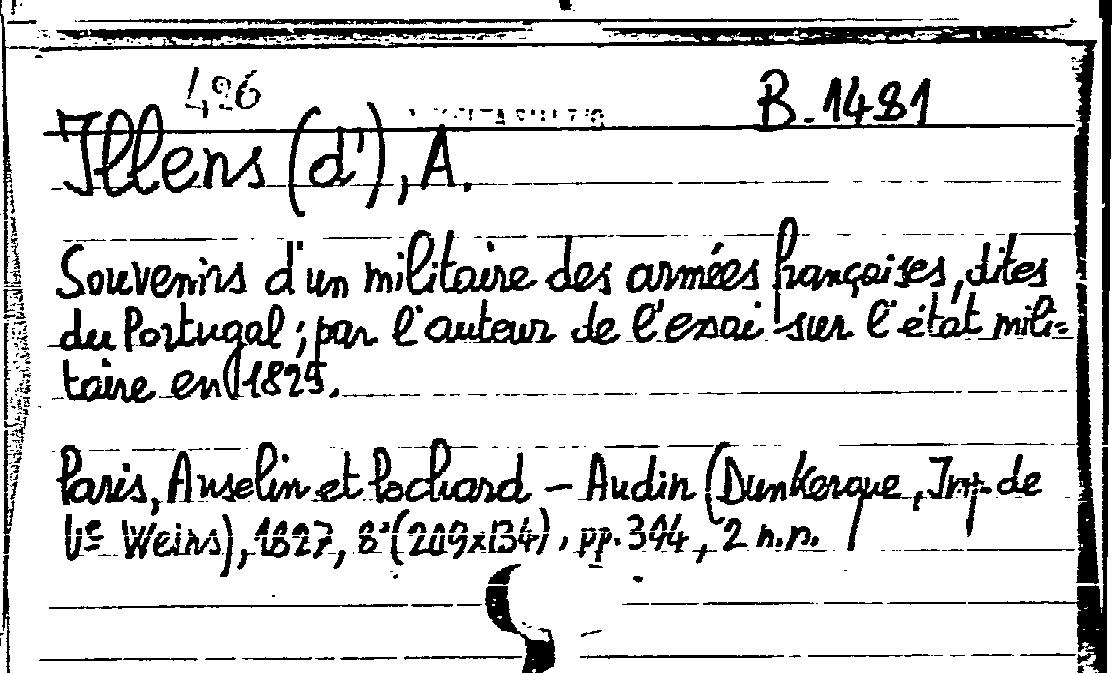 426
B. 1481
Illens (d'), A.
Souvenirs d'un militaire des armées françaises, dites
du Portugal; par l'auteur de l'essai sur l'état mili=
taire en 1825.
Paris, Anselin et Pochard – Audin (Dunkerque, Imp. de
Vᵉ Weins), 1827, 8° (209x134), pp. 394, 2 n.n.